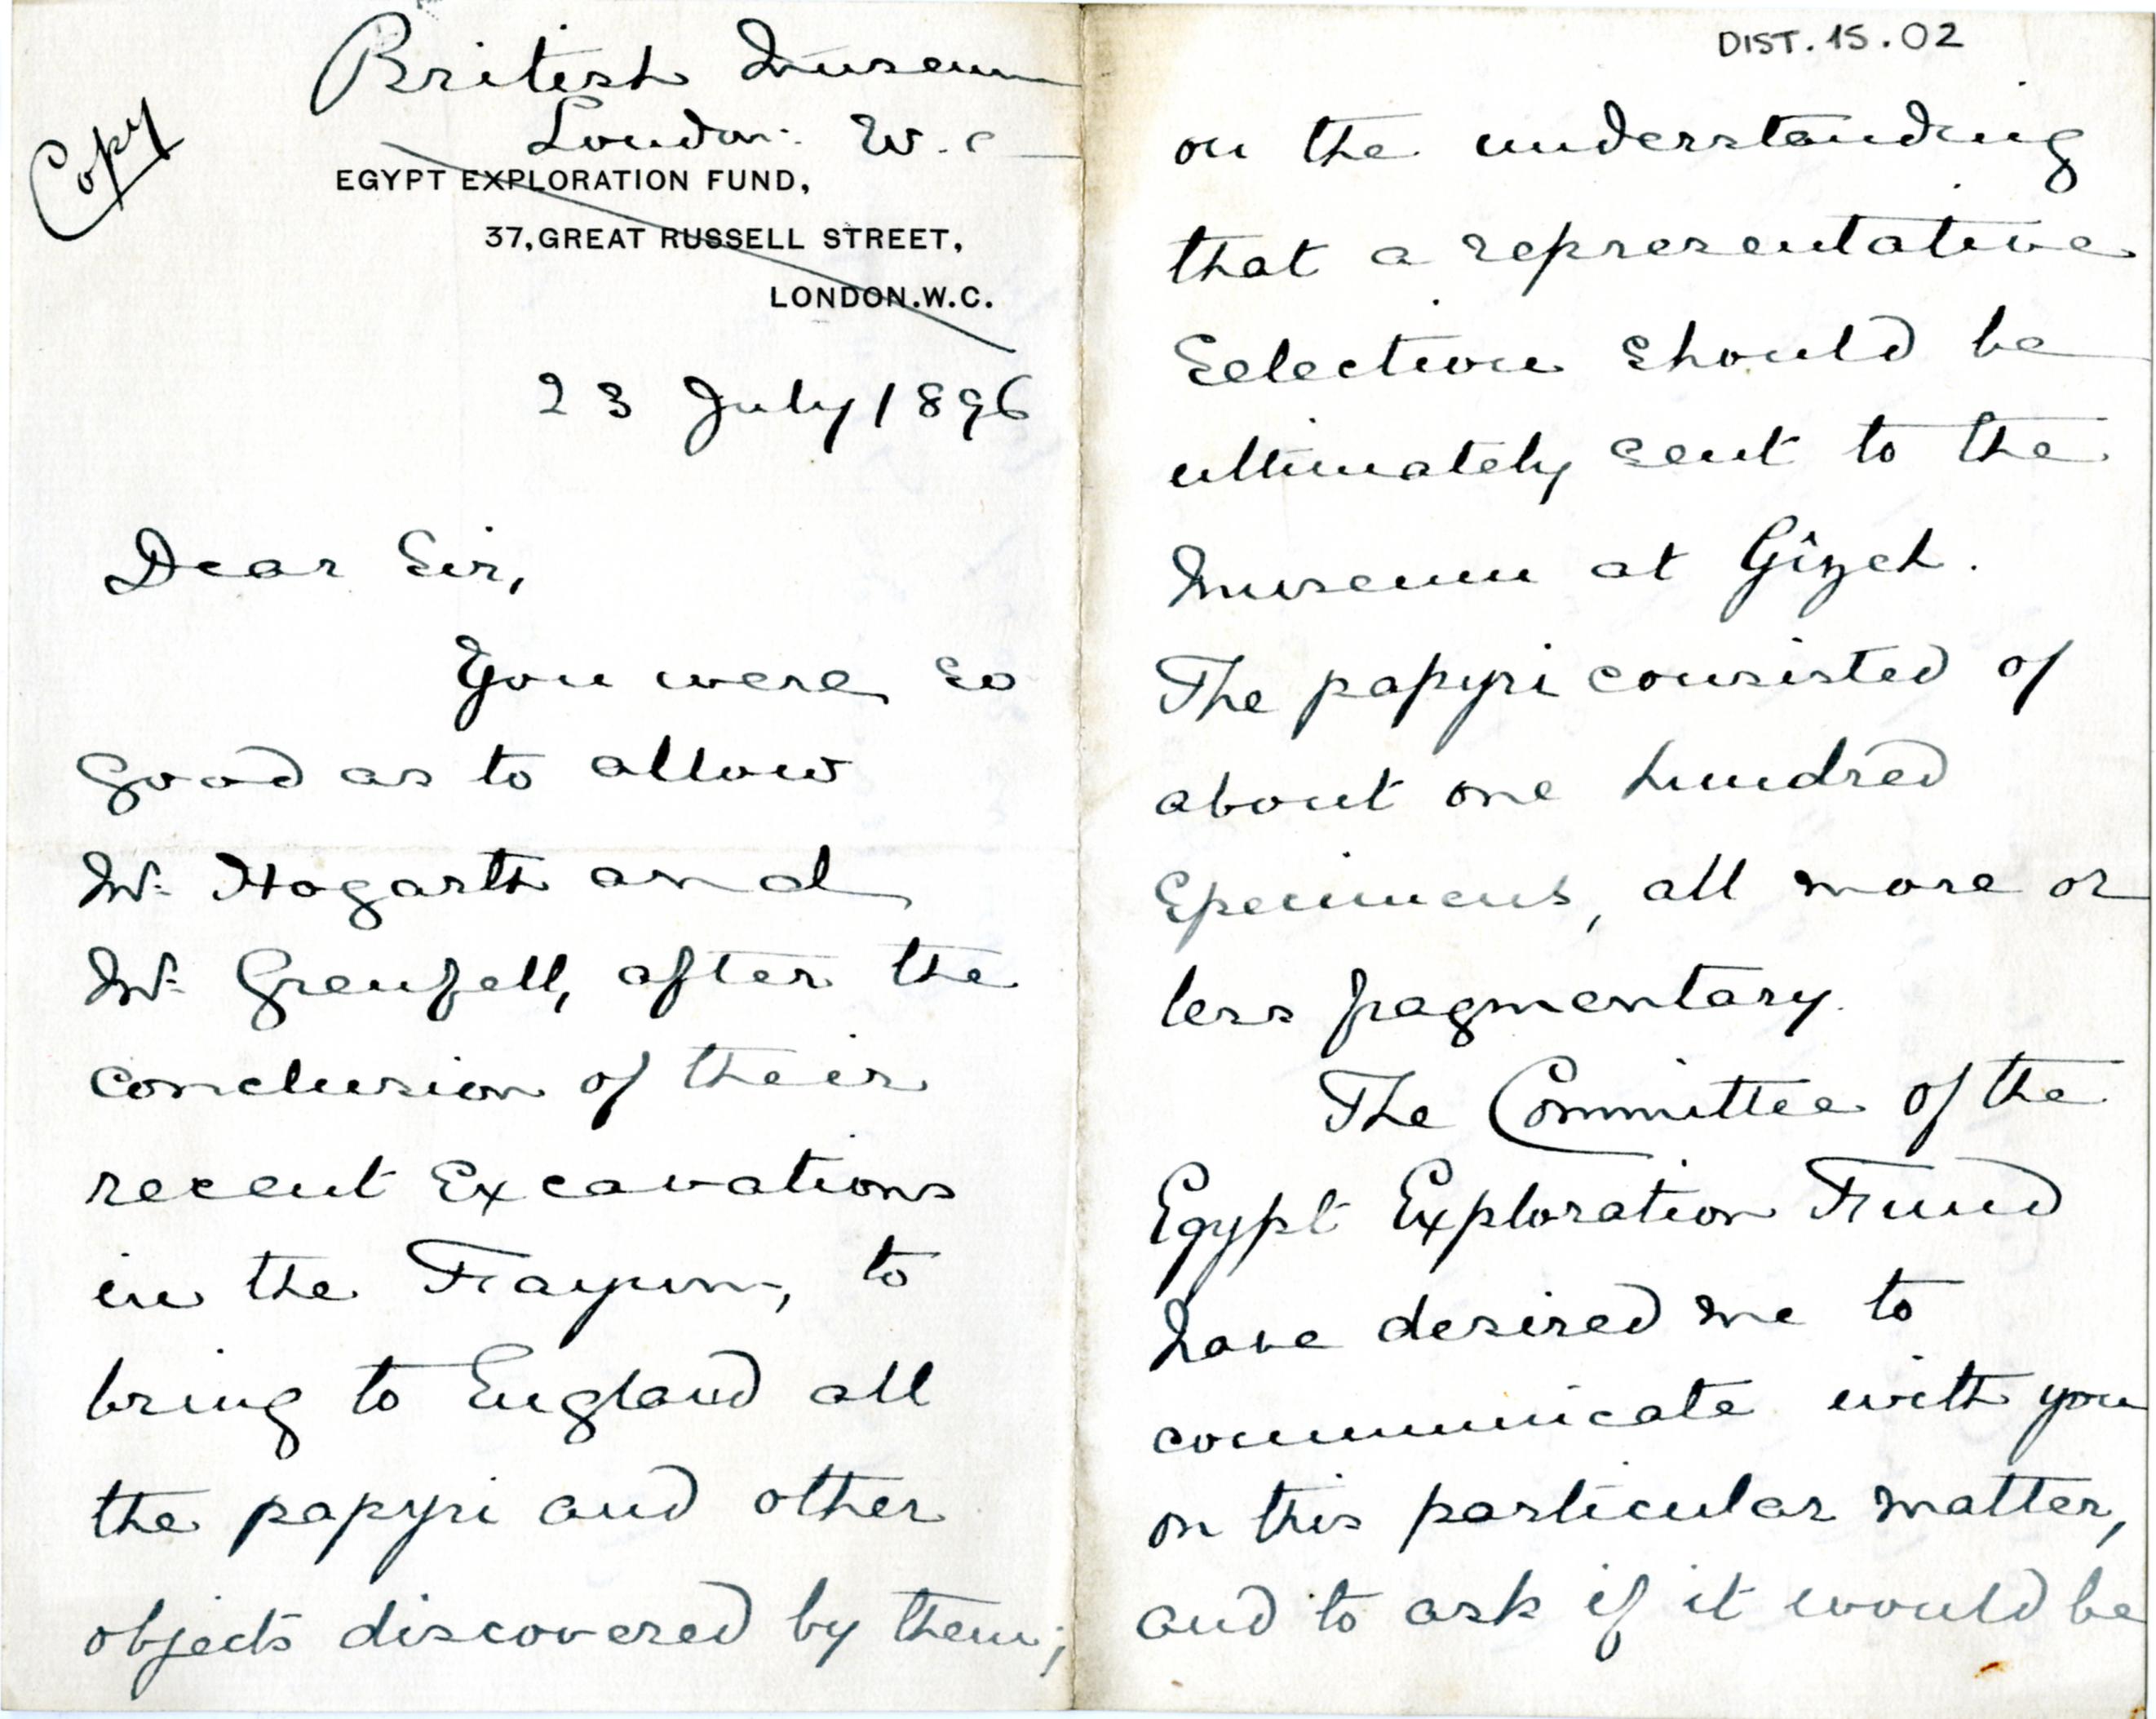 Copy
British Museum
London: W.C
EGYPT EXPLORATION FUND,
37, GREAT RUSSELL STREET,
LONDON.W.C.
23 July 1896
Dear Sir,
You were so
good as to allow
Mr. Hogarth and
Mr. Grenfell, after the
conclusion of their
recent Excavations
in the Fayum, to
bring to England all
the papyri and other
objects discovered by them;
DIST.15.02
on the understanding
that a representative
Selection should be
ultimately sent to the
Museum at Gîzeh.
The papyri consisted of
about one hundred
Specimens, all more or
less fragmentary.
The Committee of the
Egypt Exploration Fund
have desired me to
communicate with you
on this particular matter,
and to ask if it would be